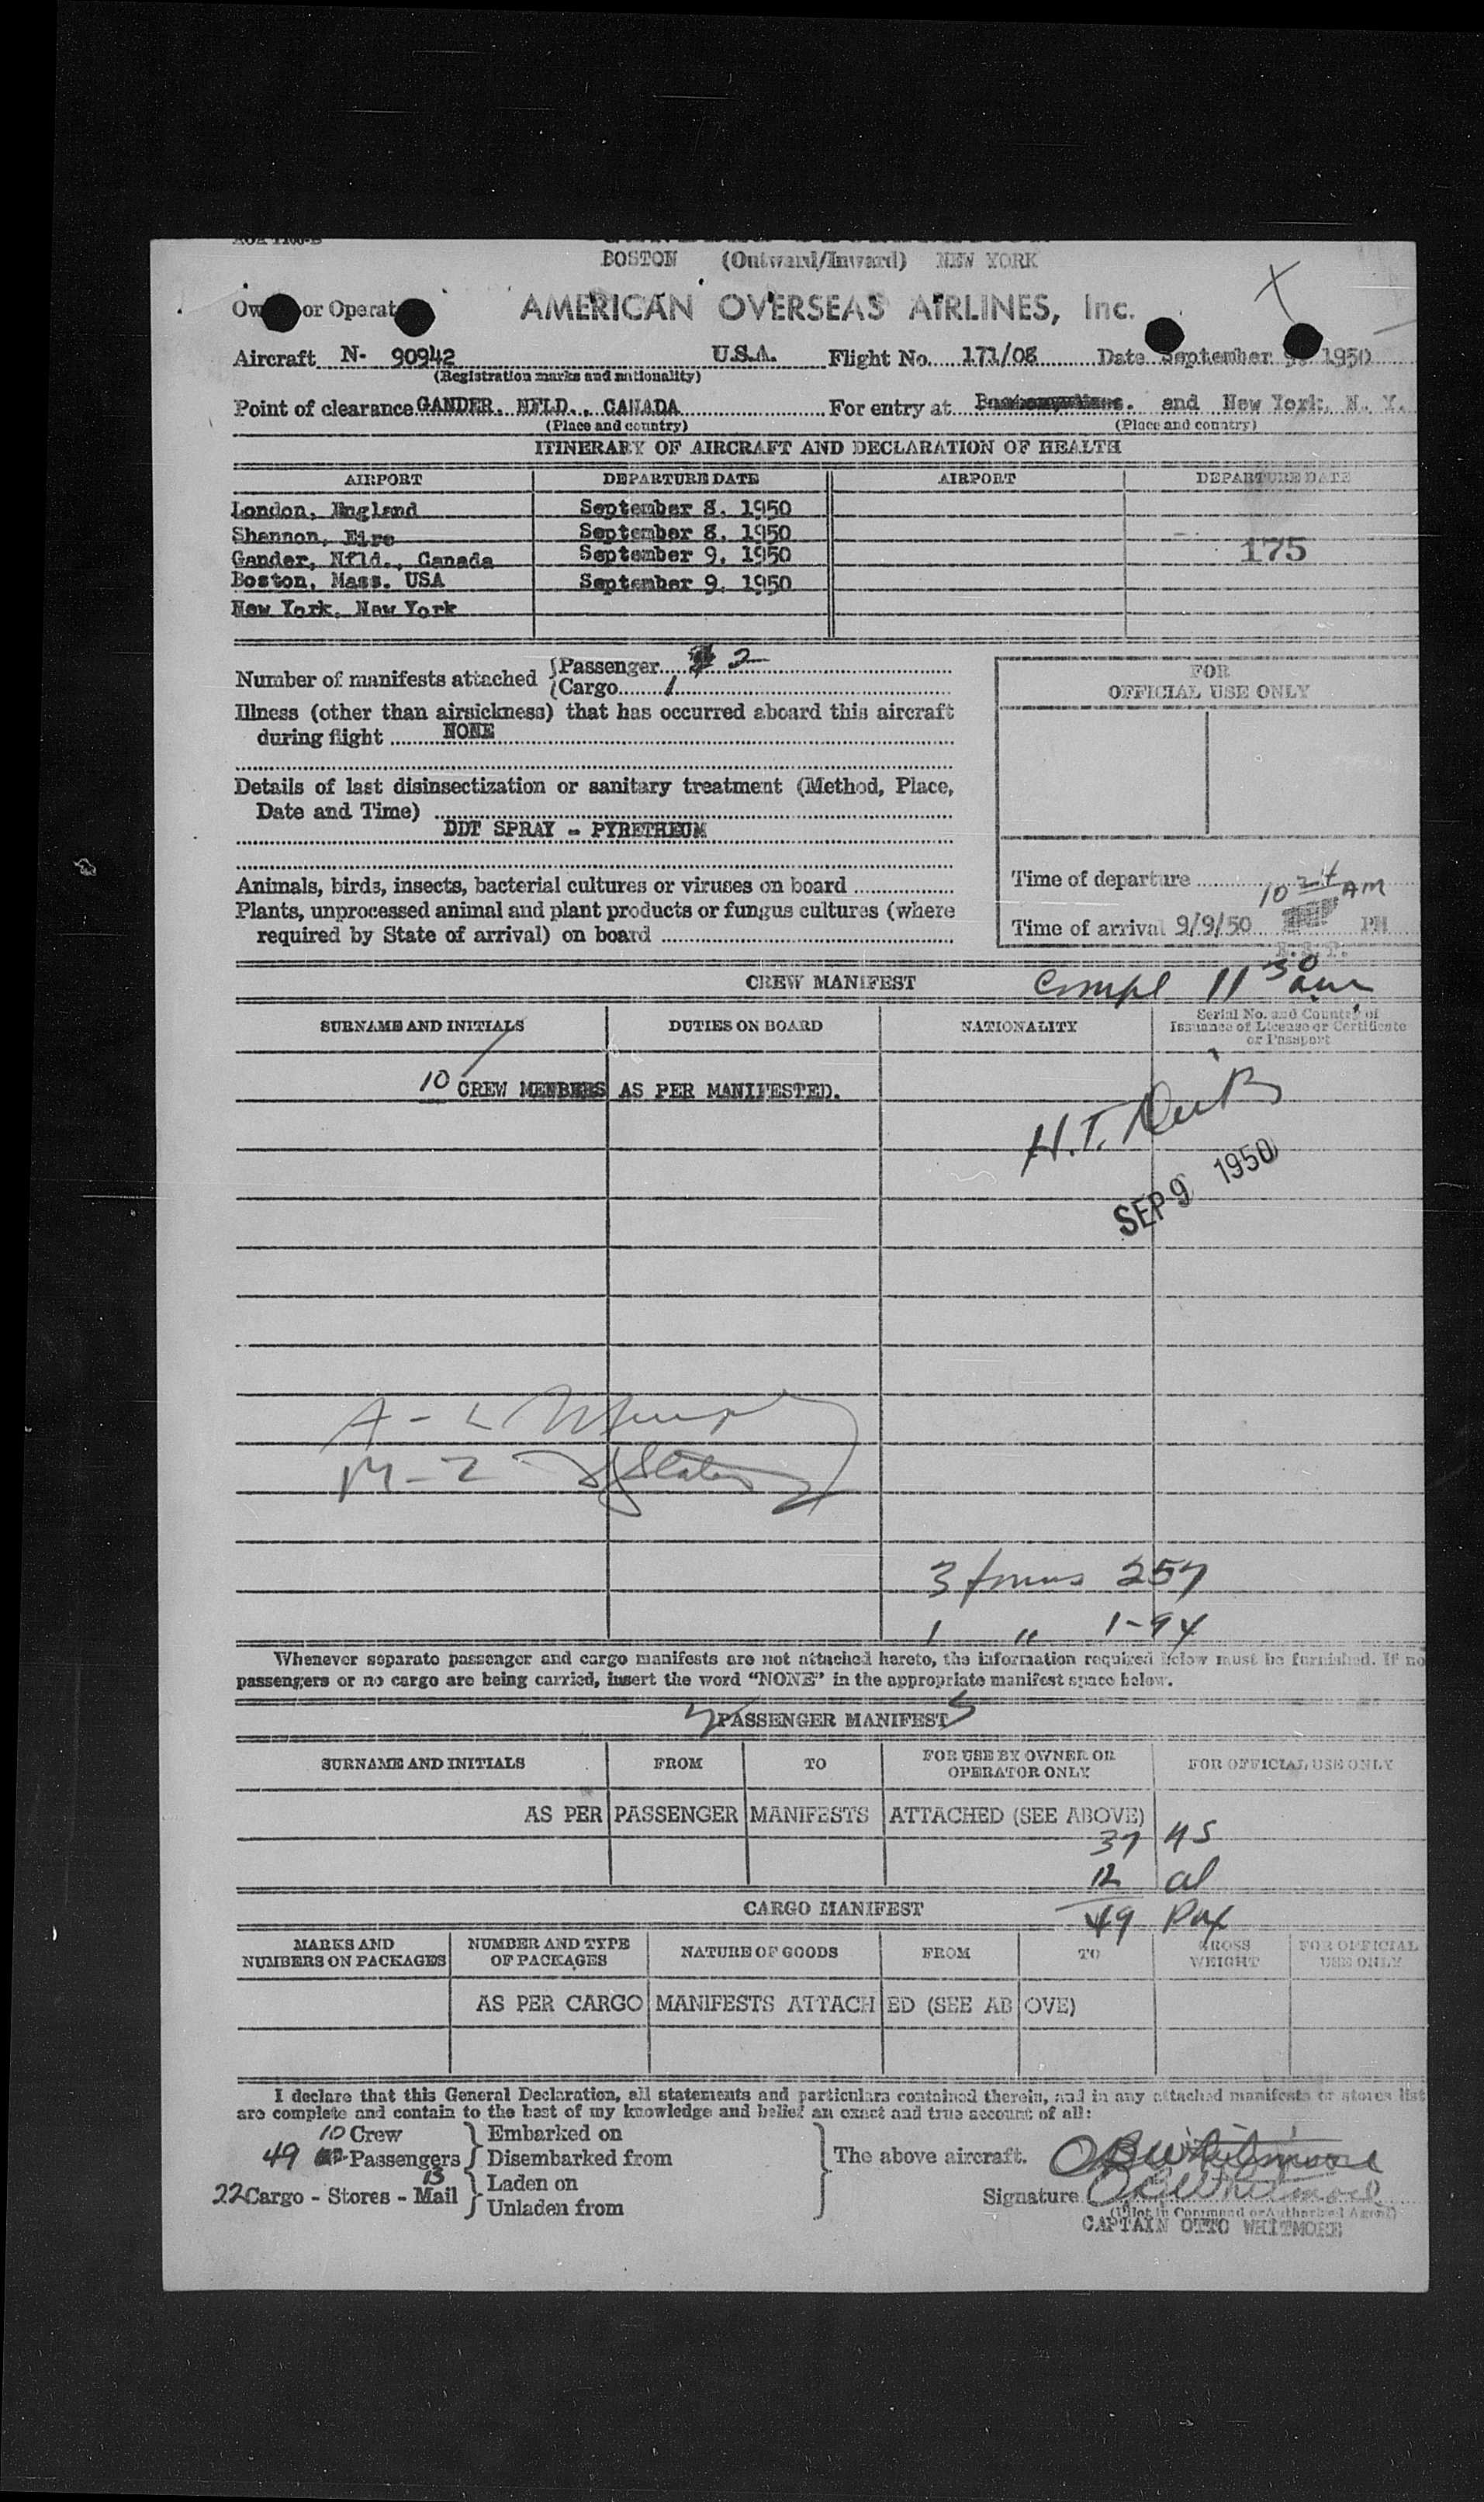 AOA 1100-B
BOSTON (Outward/Inward) NEW YORK
Owner or Operator AMERICAN OVERSEAS AIRLINES, Inc.
Aircraft N- 90942 U.S.A. Flight No. 171/08 Date September 9, 1950
(Registration marks and nationality)
Point of clearance GANDER, NFLD., CANADA For entry at and New York, N. Y.
(Place and country) (Place and country)
ITINERARY OF AIRCRAFT AND DECLARATION OF HEALTH
AIRPORT DEPARTURE DATE AIRPORT DEPARTURE DATE
London, England September 8, 1950
Shannon, Eire September 8, 1950
Gander, Nfld., Canada September 9, 1950 175
Boston, Mass. USA September 9, 1950
New York, New York
Number of manifests attached
Passenger 2
Cargo 1
FOR
OFFICIAL USE ONLY
Illness (other than airsickness) that has occurred aboard this aircraft
during flight NONE
Details of last disinsectization or sanitary treatment (Method, Place,
Date and Time)
DDT SPRAY - PYRETHEUM
Animals, birds, insects, bacterial cultures or viruses on board
Plants, unprocessed animal and plant products or fungus cultures (where
required by State of arrival) on board
Time of departure
10 24 AM
Time of arrival 9/9/50 PM
E.S.T.
CREW MANIFEST Compl 11 30 am
SURNAME AND INITIALS DUTIES ON BOARD NATIONALITY Serial No. and Country of
Issuance of License or Certificate
or Passport
10 CREW MEMBERS AS PER MANIFESTED.
H.T.
SEP 9 1950
A - L Murphy
M - Z
3 forms 257
1 " 1-94
Whenever separate passenger and cargo manifests are not attached hereto, the information required below must be furnished. If no
passengers or no cargo are being carried, insert the word "NONE" in the appropriate manifest space below.
PASSENGER MANIFEST
SURNAME AND INITIALS FROM TO FOR USE BY OWNER OR
OPERATOR ONLY FOR OFFICIAL USE ONLY
AS PER PASSENGER MANIFESTS ATTACHED (SEE ABOVE)
37 US
12 al
CARGO MANIFEST 49 Pax
MARKS AND
NUMBERS ON PACKAGES NUMBER AND TYPE
OF PACKAGES NATURE OF GOODS FROM TO GROSS
WEIGHT FOR OFFICIAL
USE ONLY
AS PER CARGO MANIFESTS ATTACHED (SEE ABOVE)
I declare that this General Declaration, all statements and particulars contained therein, and in any attached manifests or stores list
are complete and contain to the best of my knowledge and belief an exact and true account of all:
10 Crew Embarked on
49 Passengers Disembarked from The above aircraft. OBWhitmore
13
22 Cargo - Stores - Mail Laden on
Unladen from
Signature OBWhitmore
(Pilot in Command or Authorized Agent)
CAPTAIN OTTO WHITMORE